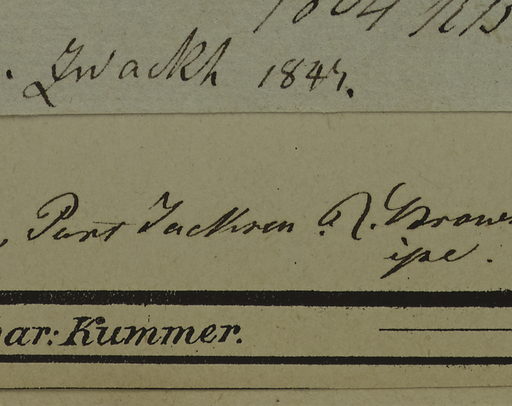 1804 RB
. Zwackh 1847.
, Port Jackson. R. Brown
ipse.
ar: Kummer.